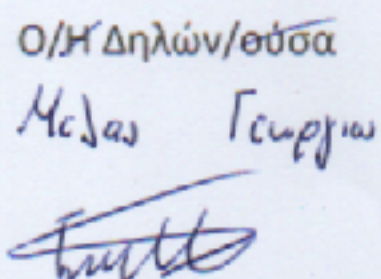 Ο/Η Δηλών/ούσα
Μελας Γεωργιος